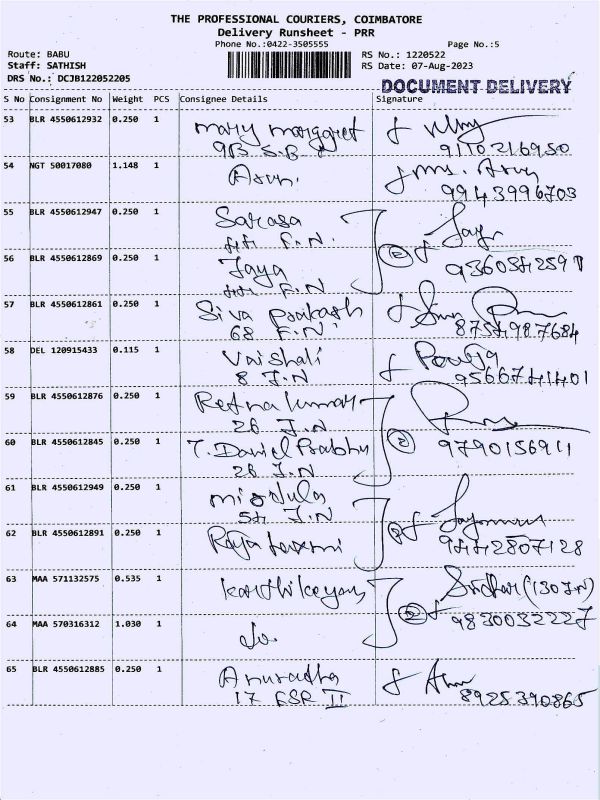 THE PROFESSIONAL COURIERS, COIMBATORE
Delivery Runsheet - PRR
Phone No.:0422-3505555 Page No.:5
Route: BABU RS No.: 1220522
Staff: SATHISH RS Date: 07-Aug-2023
DRS No.: DCJB122052205
DOCUMENT DELIVERY
S No Consignment No Weight PCS Consignee Details Signature
53 BLR 4550612932 0.250 1 mary margaret
9B S.B 9110216950
54 NGT 50017080 1.148 1 Arun. Ms. Arun
9943996703
55 BLR 4550612947 0.250 1 Sarasa Jay
F.N.
56 BLR 4550612869 0.250 1 Jaya 2
F.N
57 BLR 4550612861 0.250 1 Siva prakash
68 F.N 8754987684
58 DEL 120915433 0.115 1 Vaishali Pooja
8 J.N 9566741401
59 BLR 4550612876 0.250 1 Retna kumar
26 J.N
60 BLR 4550612845 0.250 1 T. Daniel Prabhu 2 9790156911
26 J.N
61 BLR 4550612949 0.250 1 mirdula
54 J.N
62 BLR 4550612891 0.250 1 Raja laxmi 2 9442807128
63 MAA 571132575 0.535 1 karthikeyan Sridhar (130 J.N)
2 9830032227
64 MAA 570316312 1.030 1 do.
65 BLR 4550612885 0.250 1 Anuradha
17 GSR II 8925390865